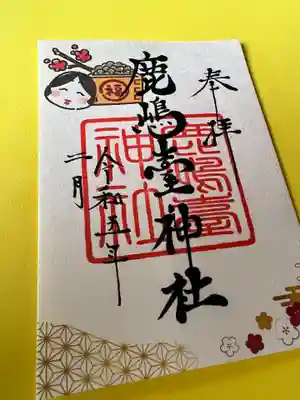 奉拝
鹿嶋臺神社
令和五年
二月
福
鹿嶋臺
神社